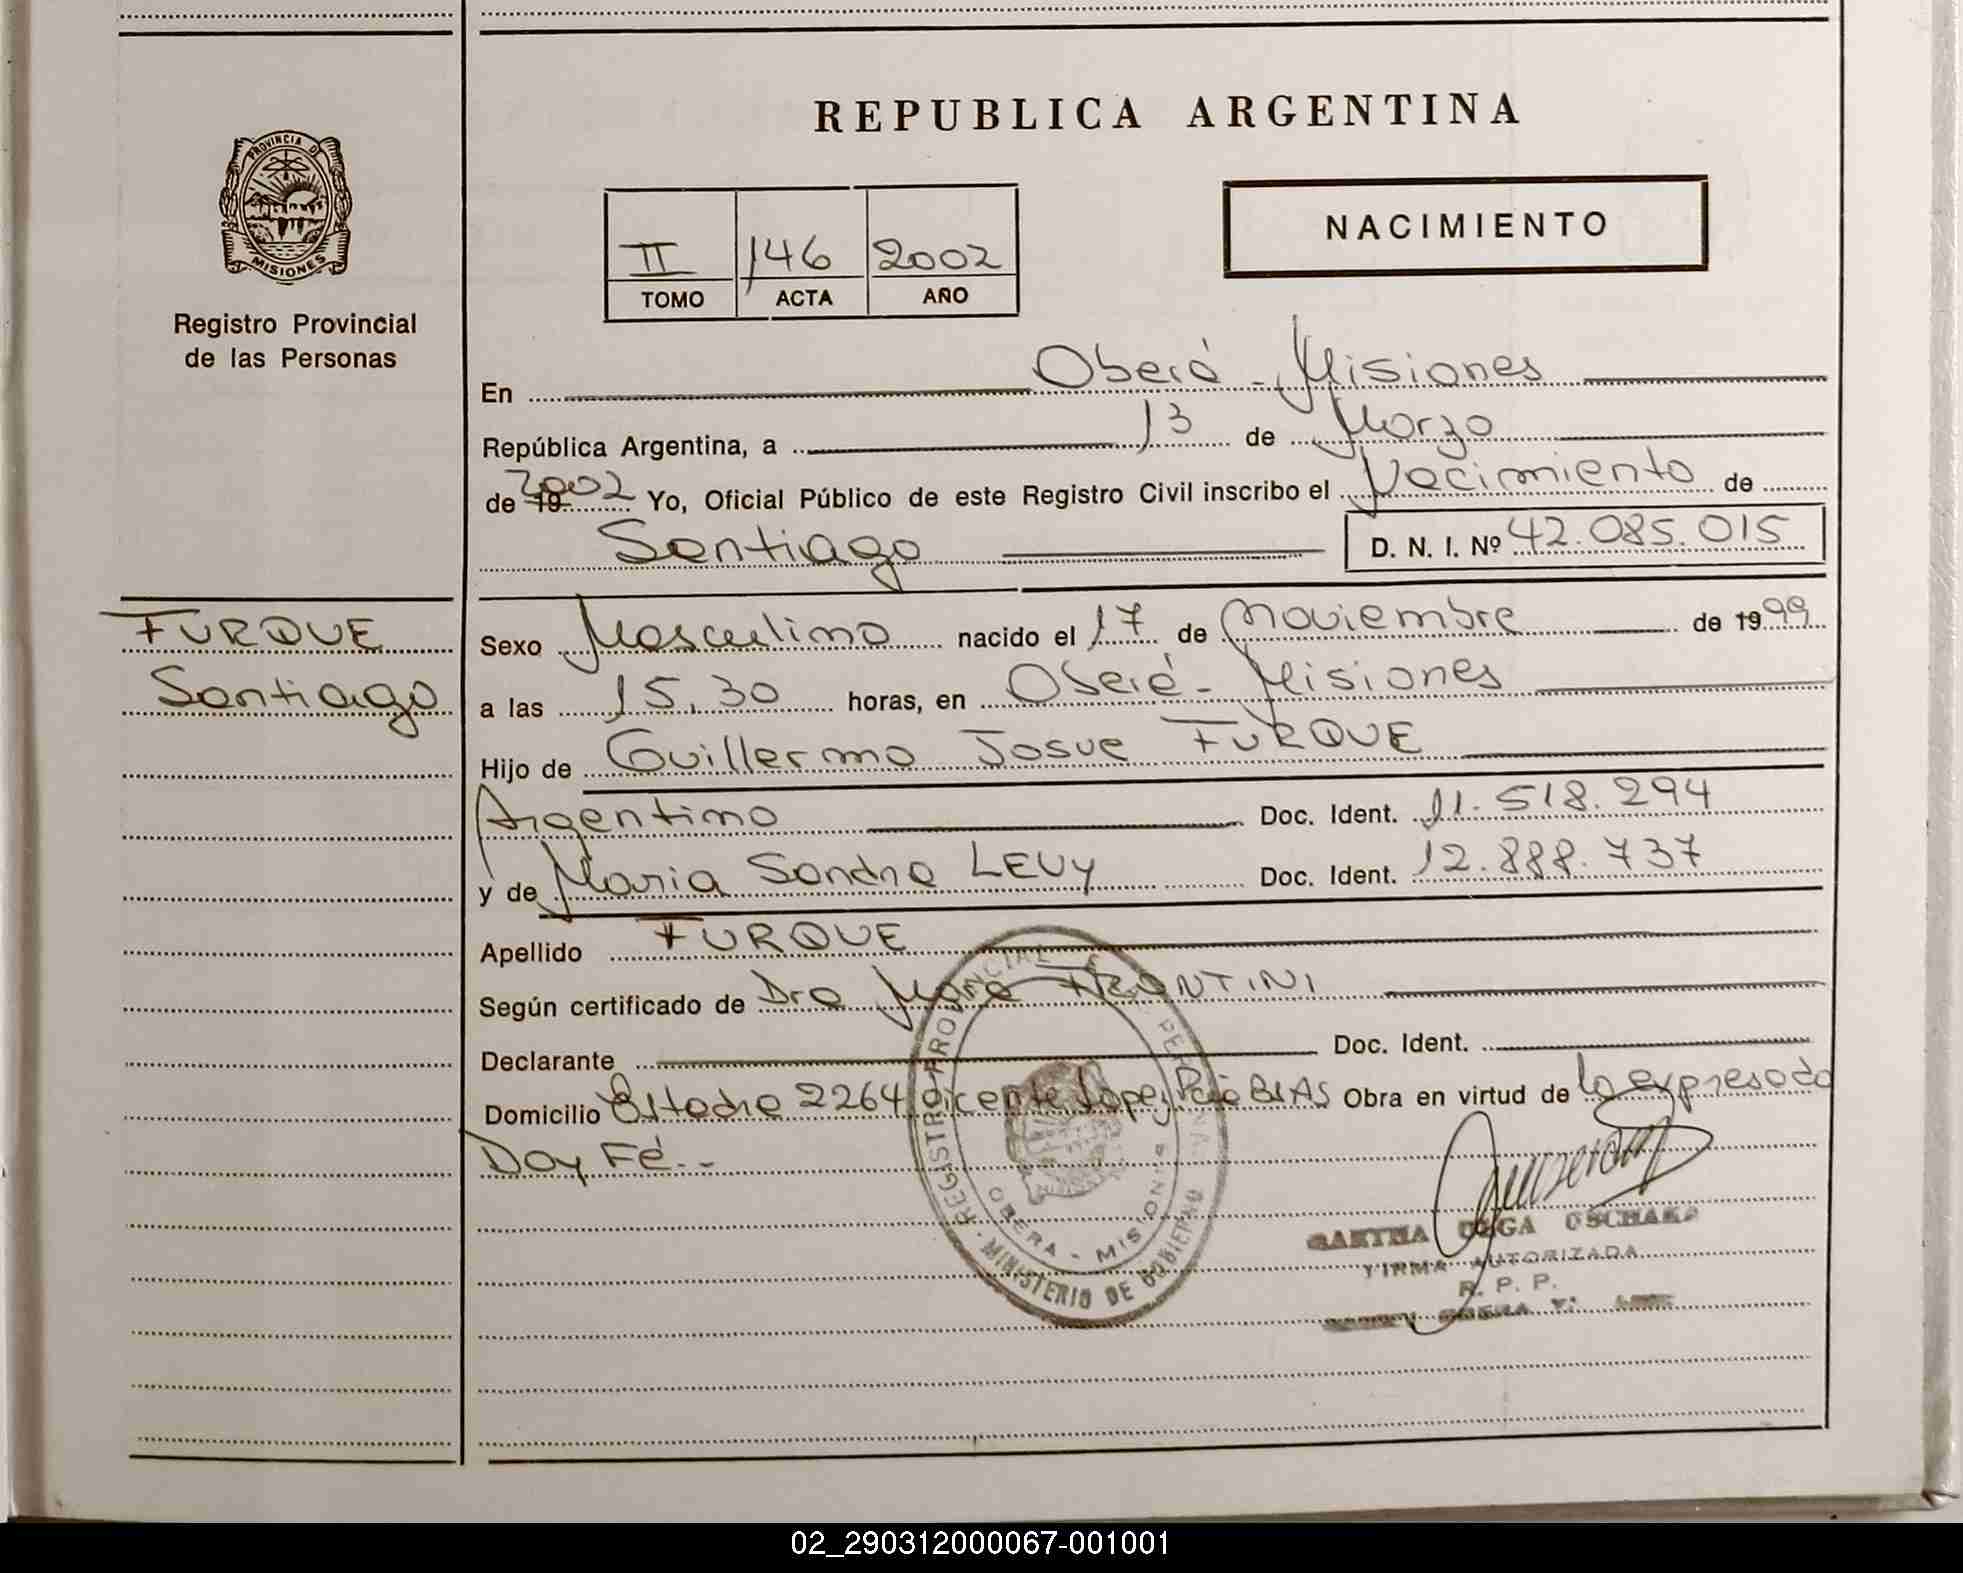 REPUBLICA ARGENTINA
PROVINCIA DE
MISIONES
Registro Provincial
de las Personas
NACIMIENTO
II 146 2002
TOMO ACTA AÑO
En Oberá - Misiones
República Argentina, a 13 de Marzo
de 19 2002 Yo, Oficial Público de este Registro Civil inscribo el Nacimiento de
Santiago D. N. I. Nº 42.085.015
FURQUE
Santiago
Sexo Masculino nacido el 17 de Noviembre de 1999
a las 15,30 horas, en Oberá - Misiones
Hijo de Guillermo Josue FURQUE
Argentino Doc. Ident. 11.518.294
y de Maria Sandra LEVY Doc. Ident. 12.888.737
Apellido FURQUE
Según certificado de Dra Mara FRONTINI
Declarante Doc. Ident.
Domicilio 2264 Vicente Lopez Pcia Bs AS Obra en virtud de lo expresado
Doy Fé.-
REGISTRO PROVINCIAL DE
OBERA - MISIONES
MINISTERIO DE GOBIERNO
OLGA
FIRMA AUTORIZADA
R. P. P.
02_290312000067-001001